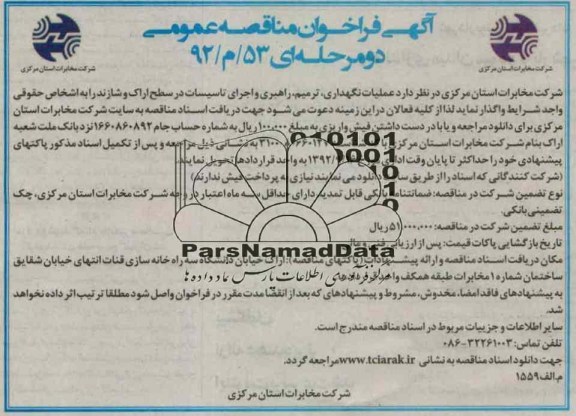 آگهی فراخوان مناقصه عمومی
دومرحله‌ای ۵۳/م/۹۲
شرکت مخابرات استان مرکزی
شرکت مخابرات استان مرکزی
شرکت مخابرات استان مرکزی در نظر دارد عملیات نگهداری، ترمیم، راهبری و اجرای تاسیسات در سطح اراک و شازند را به اشخاص حقوقی
واجد شرایط واگذار نماید لذا از کلیه فعالان در این زمینه دعوت می شود جهت دریافت اسناد مناقصه به سایت شرکت مخابرات استان
مرکزی برای دانلود مراجعه و یا با در دست داشتن فیش واریزی به مبلغ ۱۰۰,۰۰۰ ریال به شماره حساب جام ۱۶۶۰۸۶۰۸۹۲ نزد بانک ملت شعبه
اراک بنام شرکت مخابرات استان مرکزی به نشانی ذیل مراجعه و پس از تکمیل اسناد مذکور پاکتهای
پیشنهادی خود را حداکثر تا پایان وقت به واحد قراردادها تحویل نمایند.
(شرکت کنندگانی که اسناد را از طریق سایت دانلود می نمایند نیازی به پرداخت فیش ندارند)
نوع تضمین شرکت در مناقصه: ضمانتنامه بانکی قابل تمدید دارای حداقل سه ماه اعتبار در وجه شرکت مخابرات استان مرکزی، چک
تضمینی بانکی.
مبلغ تضمین شرکت در مناقصه: ۵۱,۰۰۰,۰۰۰ ریال
تاریخ بازگشایی پاکات قیمت: پس از ارزیابی فنی و مالی
مکان دریافت اسناد مناقصه و ارائه پیشنهادات (پاکتهای مناقصه): اراک خیابان دانشگاه سه راه خانه سازی قنات انتهای خیابان شقایق
ساختمان شماره ۱ مخابرات طبقه همکف واحد قراردادها
به پیشنهادهای فاقد امضا، مخدوش، مشروط و پیشنهادهای که بعد از انقضا مدت مقرر در فراخوان واصل شود مطلقا ترتیب اثر داده نخواهد
شد.
سایر اطلاعات و جزییات مربوط در اسناد مناقصه مندرج است.
تلفن تماس: ۳۲۲۶۱۰۰۳-۰۸۶
جهت دانلود اسناد مناقصه به نشانی www.tciarak.ir مراجعه گردد.
م.الف ۱۵۵۹
شرکت مخابرات استان مرکزی
ParsNamadData